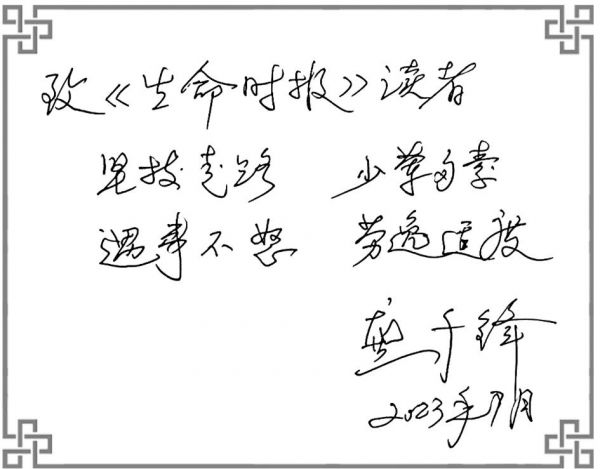 致《生命时报》读者
坚持走路 少荤多素
遇事不怒 劳逸适度
2023年7月